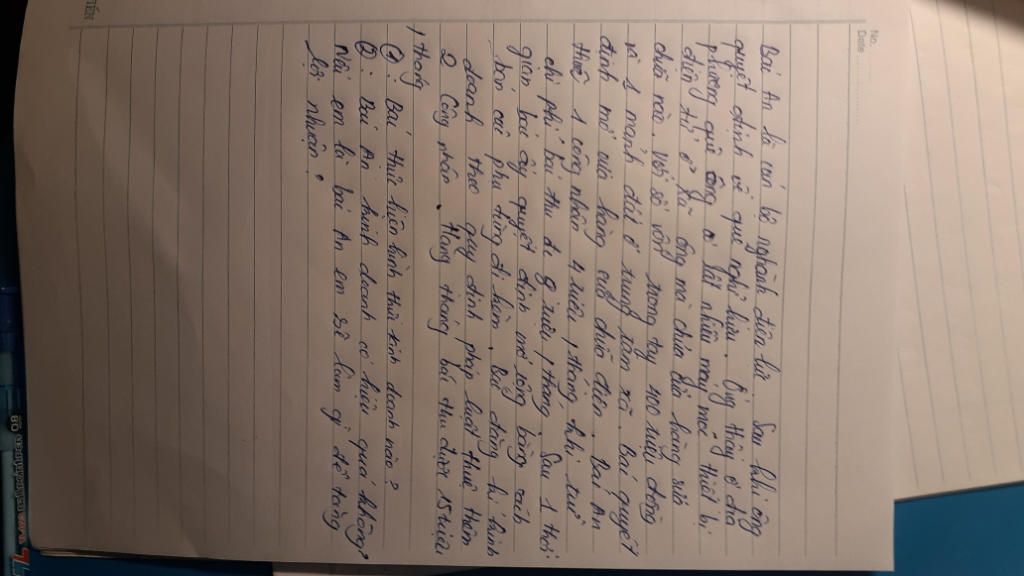 No.
Date
Bác An là cán bộ nghành điện tử. Sau khi ông
quyết định về quê nghỉ hưu. Ông thấy ở địa
phương quê ông có rất nhiều máy móc thiết bị
điện tử ở xã ông mà chưa có cửa hàng sửa
chữa nào. với số vốn trong tay 400 triệu đồng
và 1 mảnh đất ở trung tâm xã. Bác quyết
định mở cửa hàng sửa chữa điện. Bác An
thuê 1 công nhân 4 triệu / tháng khi trừ
chi phí bác thu đc 9 triệu / tháng. Sau 1 thời
gian bác ấy quyết định mở rộng bằng cách
bán các phụ tùng đi kèm. Bác đăng kí kinh
doanh theo quy định pháp luật thuê thêm
2 Công nhân. Hằng tháng bác thu được 15 triệu
/ tháng
①: Bác thực hiện hình thức kinh doanh nào?
②: Bác An kinh doanh có hiệu quả không?
Nếu em là bác An em sẽ làm gì để tăng
lợi nhuận?
TIẾN